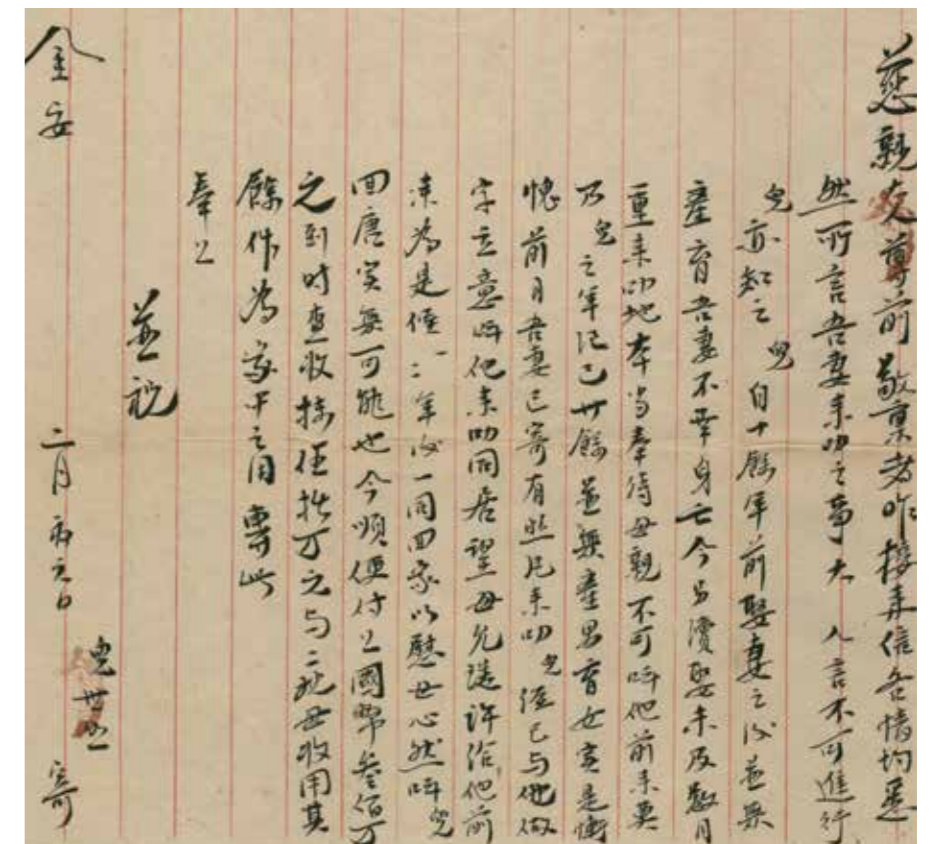 慈親大人尊前敬稟者昨接來信各情均悉
然所言吾妻來叻之事大人言不可進行
兒亦知之兒自十餘年前娶妻之後並無
產育吾妻不幸身亡今另續娶未及數月
重來叻地本當奉侍母親不可呌他前來奠
乃兒之年紀已廿餘並無產男育女實是慚
愧前月吾妻已寄有照片來叻兒經已与他做
字立意呌他來叻同居望母允諾許給他前
來為是僅一二年後一同回家以慰母心然呌兒
回唐实無可能也今順便付上國幣叁佰万
元到时查收抹伍拾万元与二叔母收用其
餘作為家中之用專此
奉上
並祝
金安
二月初六日
兒世丕 寄